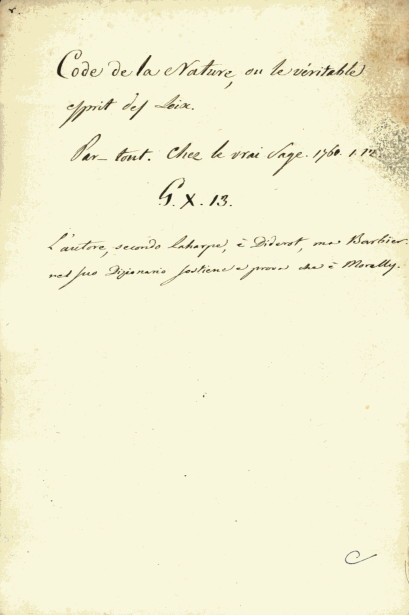 Code de la Nature, ou le véritable
esprit des Loix.
Par-tout. Chez le vrai Sage. 1760. 1. 12.
G. X. 13.
L'autore, secondo Laharpe, è Diderot, ma Barbier
nel suo Dizionario sostiene e prova che è Morelly.
C